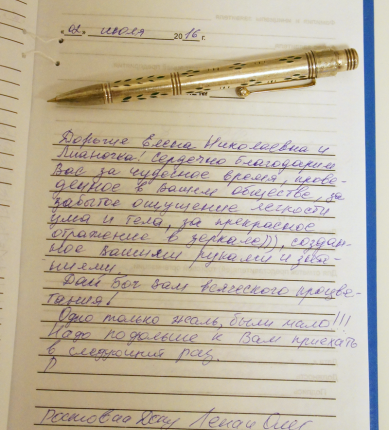 02 июля 2016 г.
Дорогие Елена Николаевна и
Лианочка! Сердечно благодарим
Вас за чудесное время, прове-
денное в Вашем обществе, за
забытое ощущение легкости
ума и тела, за прекрасное
отражение в зеркале)), создан-
ное Вашими руками и зна-
ниями!
Дай Бог Вам всяческого процве-
тания!
Одно только жаль, были мало!!!
Надо подольше к Вам приехать
в следующий раз.
Ростов на Дону Лена и Олег